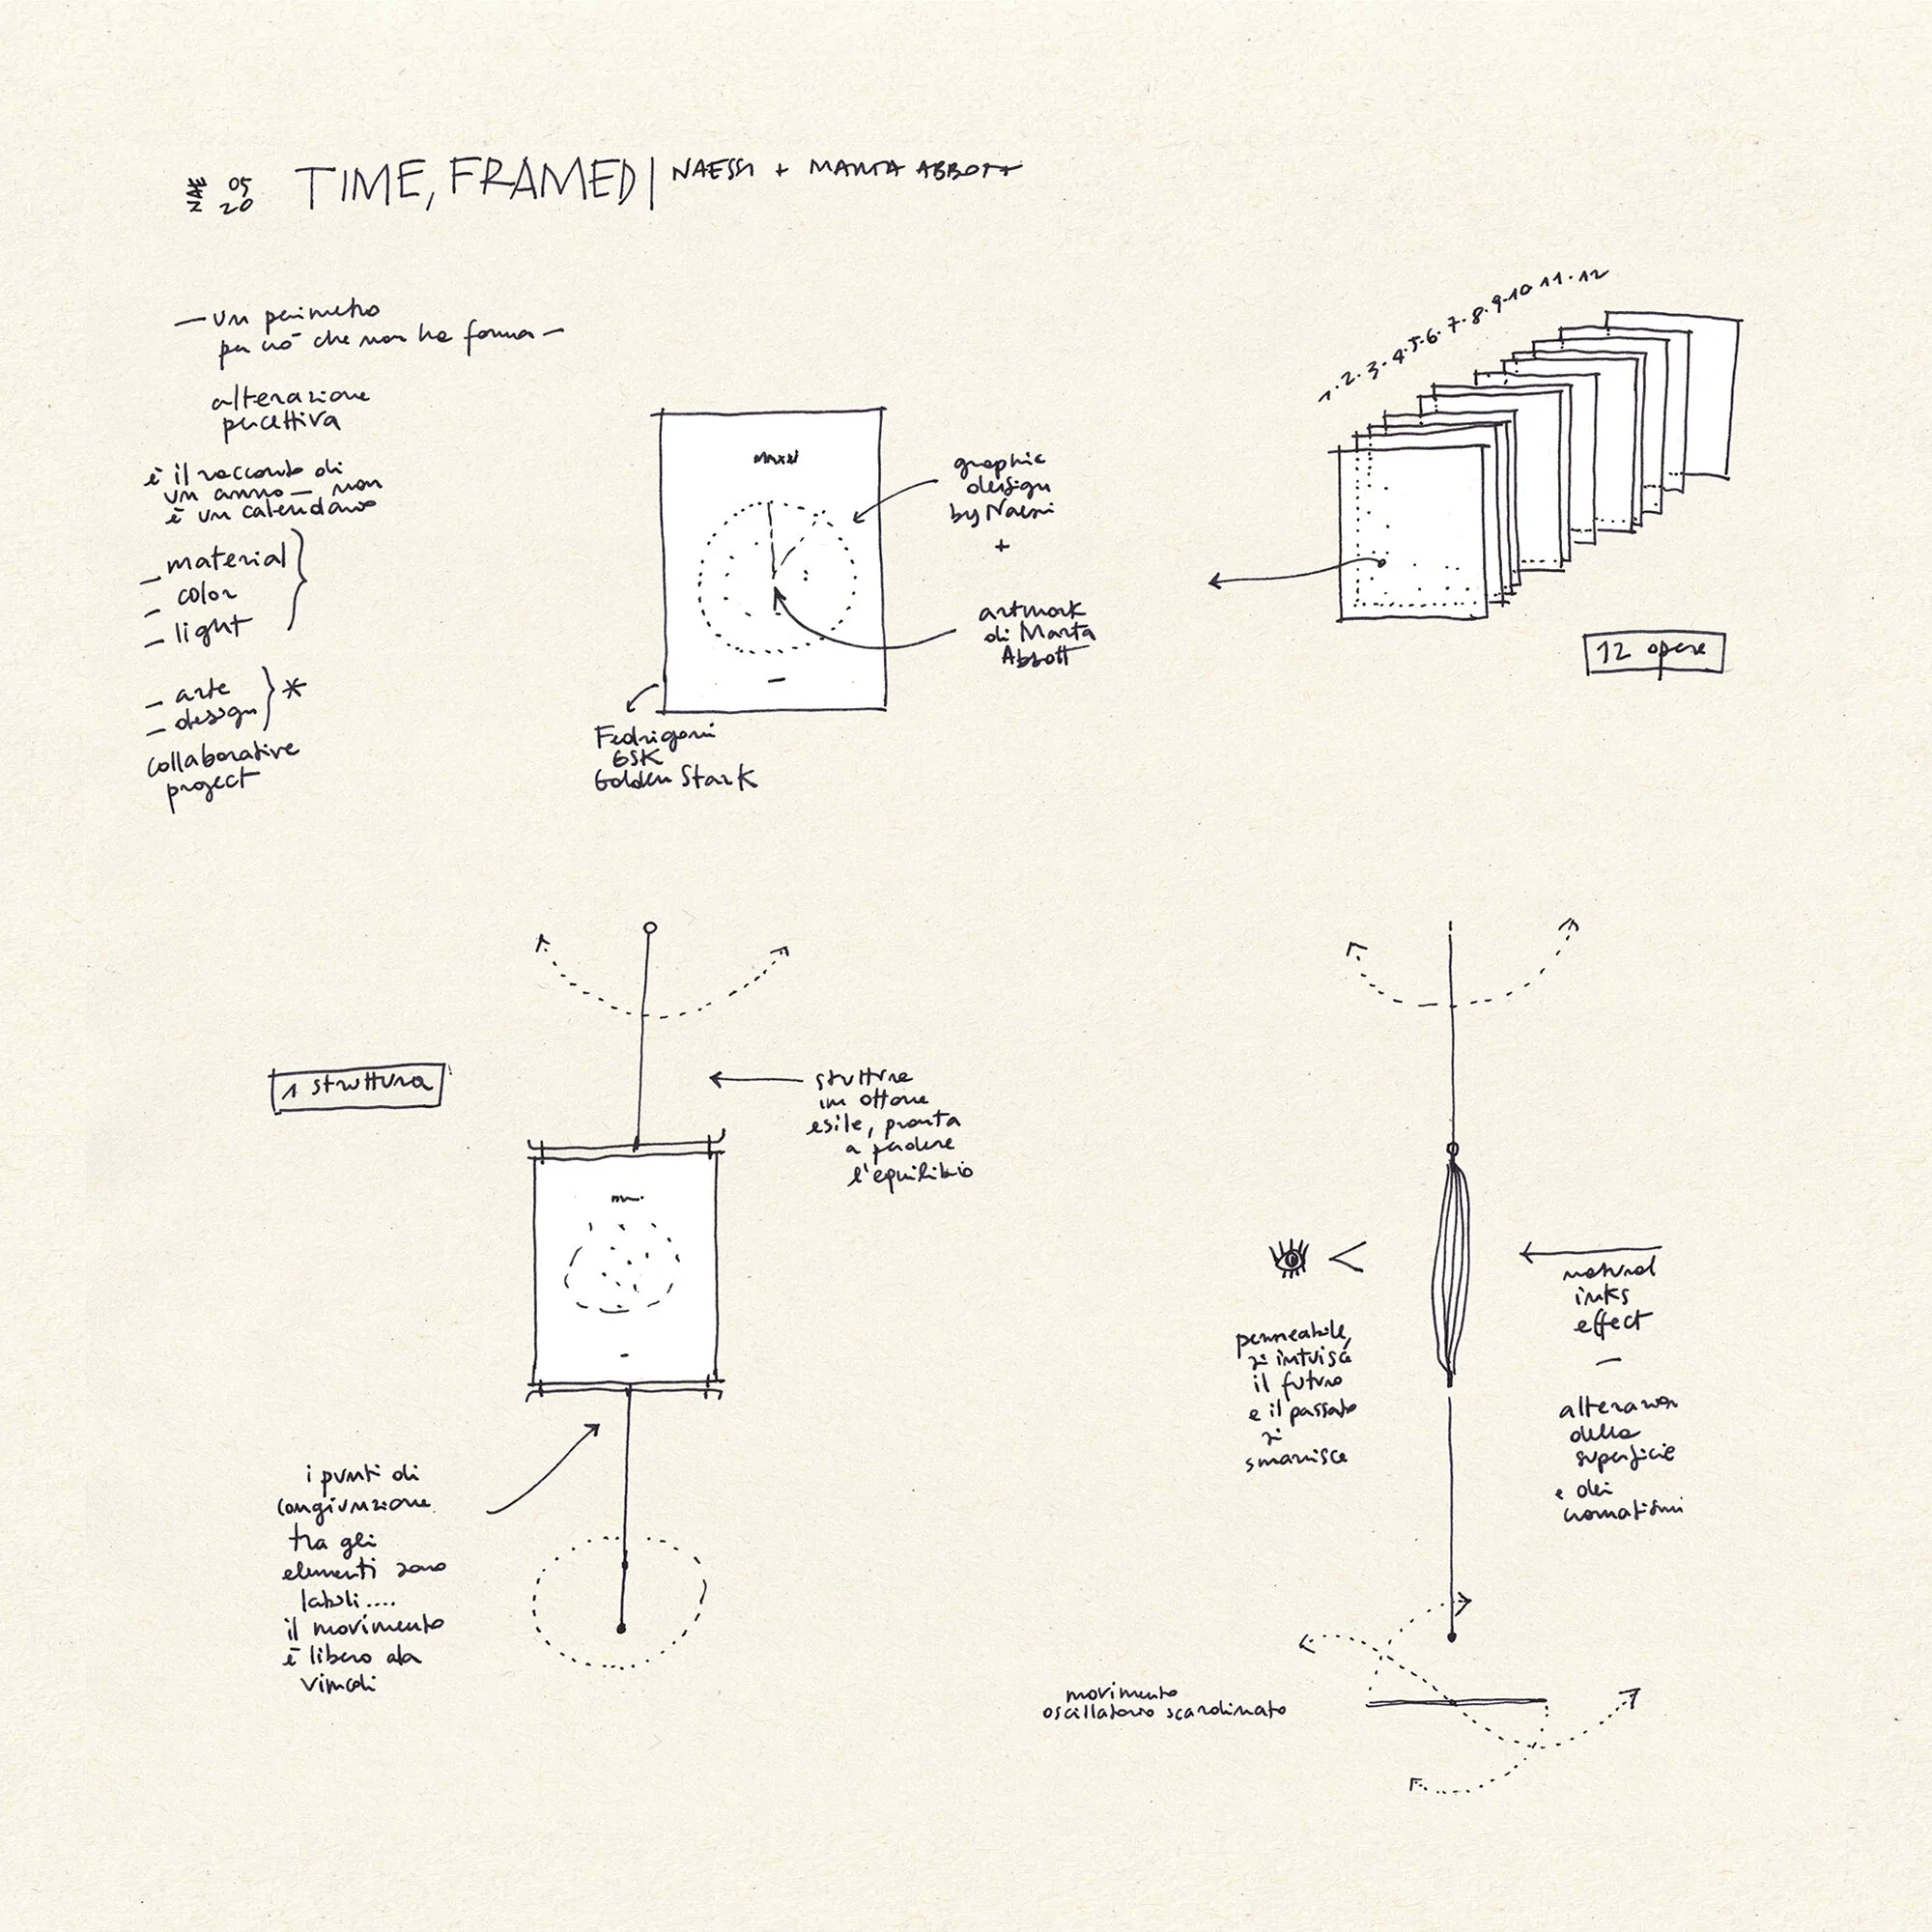 NAE 05
20
TIME, FRAMED | NAESSI + MARTA ABBOTT
— un perimetro
per ciò che non ha forma —
alterazione
percettiva
è il racconto di
un anno — non
è un calendario
— material
— color
— light
— arte
— design } *
collaborative
project
MAXXI
graphic
design
by Naessi
+
artwork
di Marta
Abbott
Fedrigoni
GSK
Golden Star K
1·2·3·4·5·6·7·8·9·10·11·12
12 opere
1 struttura
strutture
in ottone
esile, pronta
a perdere
l'equilibrio
i punti di
congiunzione
tra gli
elementi sono
labili....
il movimento
è libero da
vincoli
permeabile,
si intuisce
il futuro
e il passato
si
smarrisce
natural
inks
effect
—
alterazioni
della
superficie
e dei
cromatismi
movimento
oscillatorio scardinato